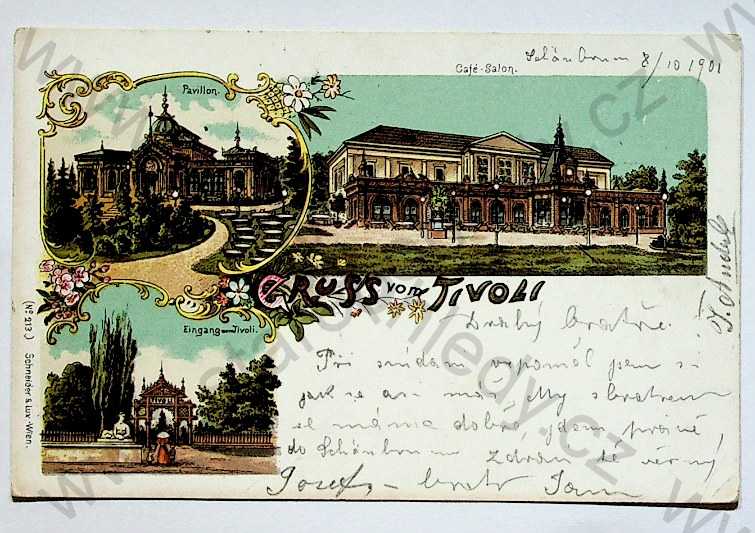 Café-Salon.
Schönbrunn 8/10 1901
Pavillon.
GRUSS vom TIVOLI
Eingang zum Tivoli.
TIVOLI
(No 213.) Schneider & Lux-Wien.
Drahý bratře.
Při snídani vzpomněl jsem si
jak se asi máš, My s bratrem
se máme dobře, jdem právě
do Schönbrunnu Zdraví tě věrný
Josef, bratr Jan